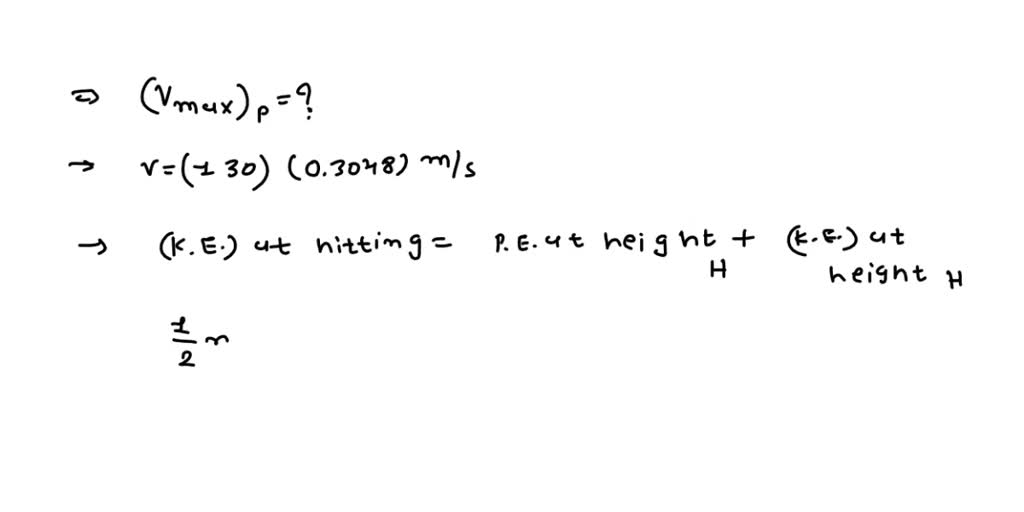 ⇒ (Vmax)p = ?
→ v = (130) (0.3048) m/s
→ (K.E.) at hitting = P.E. at height H + (K.E.) at height H
1/2 m